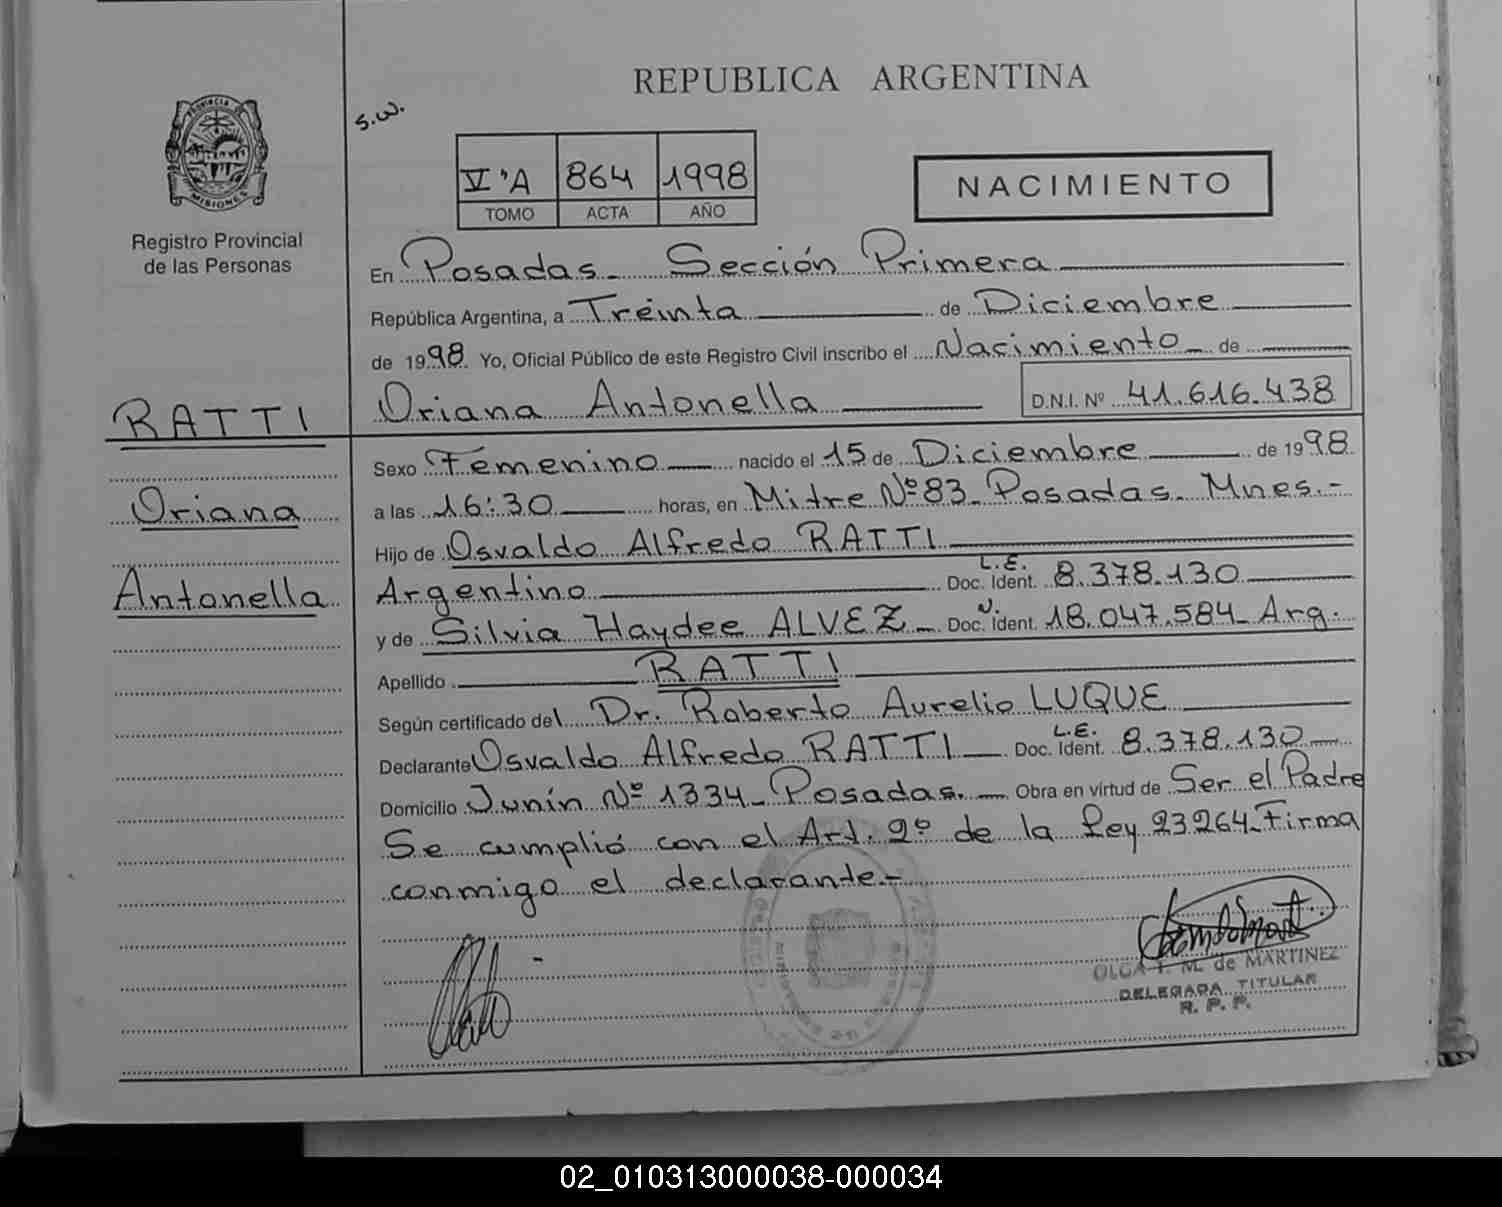 REPUBLICA ARGENTINA
S.W.
PROVINCIA DE
MISIONES
Registro Provincial
de las Personas
V'A 864 1998
TOMO ACTA AÑO
NACIMIENTO
En Posadas - Sección Primera
República Argentina, a Treinta de Diciembre
de 1998. Yo, Oficial Público de este Registro Civil inscribo el Nacimiento de
Oriana Antonella D.N.I. Nº 41.616.438
RATTI
Oriana
Antonella
Sexo Femenino nacido el 15 de Diciembre de 1998
a las 16:30 horas, en Mitre Nº 83 - Posadas - Mnes.-
Hijo de Osvaldo Alfredo RATTI
Argentino L.E. Doc. Ident. 8.378.130
y de Silvia Haydee ALVEZ - Doc. Ident. 18.047.584 - Arg.
Apellido RATTI
Según certificado del Dr. Roberto Aurelio LUQUE
Declarante Osvaldo Alfredo RATTI L.E. Doc. Ident. 8.378.130
Domicilio Junín Nº 1334 - Posadas. - Obra en virtud de Ser el Padre
Se cumplió con el Art. 2º de la Ley 23264 - Firma
conmigo el declarante.-
OLGA M. de MARTINEZ
DELEGADA TITULAR
R. P. P.
02_010313000038-000034